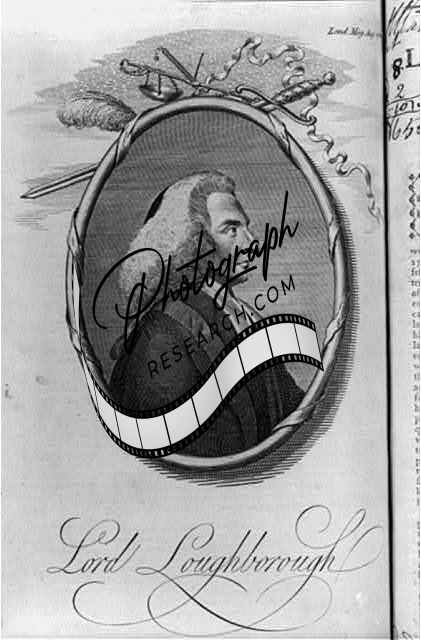 Lond. Mag. Aug.
Photograph
RESEARCH.COM
Lord Loughborough